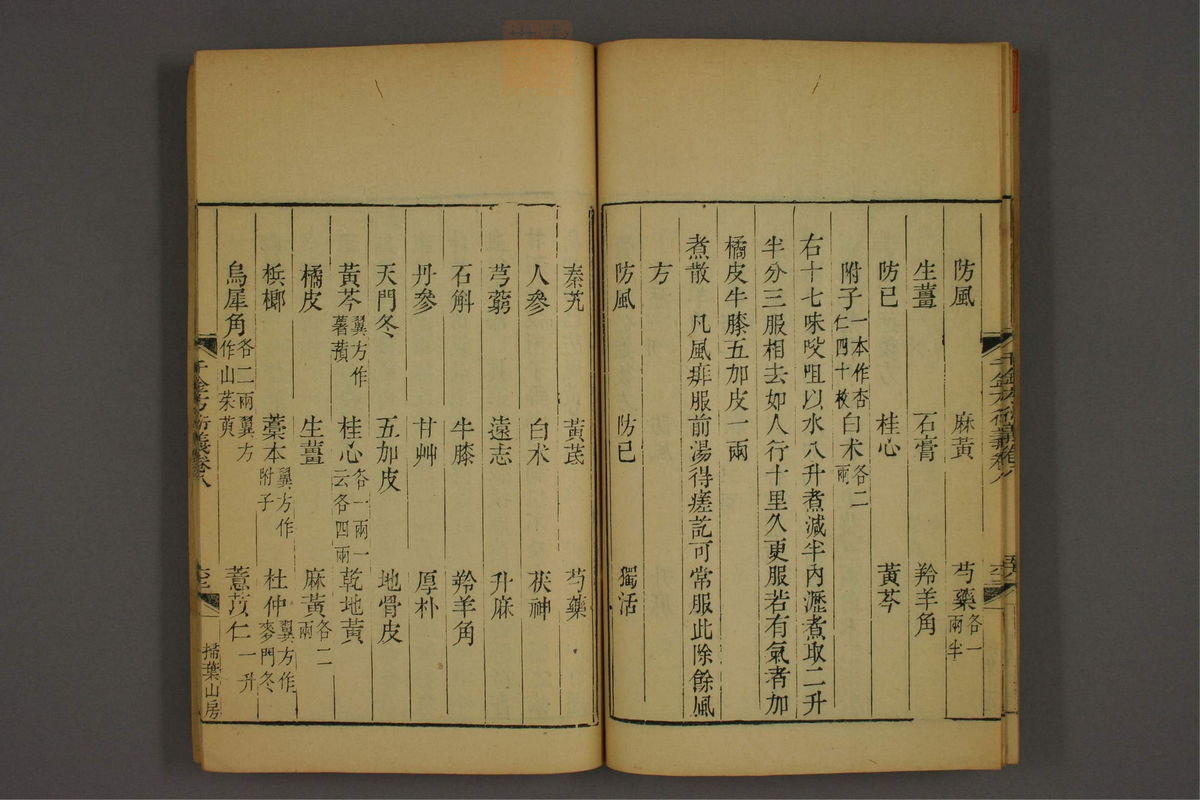 防風　麻黃　芍藥各一兩半
生薑　石膏　羚羊角
防已　桂心　黃芩
附子一本作杏仁四十枚　白朮各二兩
右十七味㕮咀以水八升煮減半內瀝煮取二升
半分三服相去如人行十里久更服若有氣者加
橘皮牛膝五加皮一兩
煮散　凡風痱服前湯得瘥訖可常服此除餘風
方
防風　防已　獨活
秦艽　黃芪　芍藥
人參　白朮　茯神
芎藭　遠志　升麻
石斛　牛膝　羚羊角
丹參　甘艸　厚朴
天門冬　五加皮　地骨皮
黃芩翼方作薯蕷　桂心各一兩一云各四兩　乾地黃
橘皮　生薑　麻黃各二兩
檳榔　藁本翼方作附子　杜仲翼方作麥門冬
烏犀角各二兩翼方作山茱萸　薏苡仁一升
千金方衍義卷八
掃葉山房